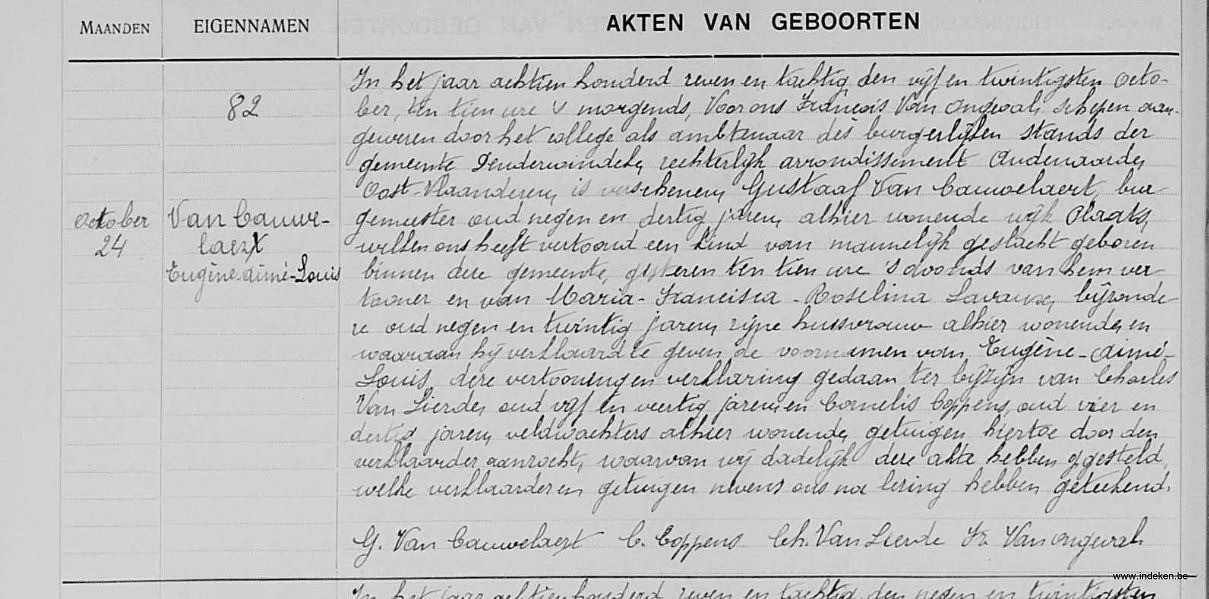 MAANDEN EIGENNAMEN AKTEN VAN GEBOORTEN
82
October
24
Van Cauwe-
laert
Eugène-dimé-Louis
In het jaar achtien honderd zeven en tachtig den vijf en twintigsten Octo-
ber, ten tien ure 's morgends, Voor ons Francois Van Ongeval schepen aan-
gewezen door het college als ambtenaar des burgerlijken stands der
gemeente Denderwindeke, rechterlijk arrondissement Audenaarde,
Oost-Vlaanderen, is verschenen, Gustaaf Van Cauwelaert, bur-
gemeester oud negen en dertig jaren, alhier wonende wijk Plaats,
welken ons heeft vertoond een kind van mannelijk geslacht geboren
binnen deze gemeente, gisteren ten tien ure 's avonds van hem ver-
tooner en van Maria-Francisca-Roselina bijzonde-
re oud negen en twintig jaren, zijne huisvrouw alhier wonende, en
waaraan hij verklaard te geven de voornamen van Eugène-dimé-
Louis, deze vertooningen verklaring gedaan ter bijzijn van Charles
Van Lierde, oud vijf en veertig jaren, en Cornelis Coppens, oud vier en
dertig jaren, veldwachters alhier wonende, getuigen hiertoe door den
verklaarder aanzocht, waarvan wij dadelijk deze akta hebben opgesteld,
welke verklaarder en getuigen nevens ons na lezing hebben geteekend.
G. Van Cauwelaert C. Coppens Ch. Van Lierde Fr. Van ongeval
www.indeken.be
In het jaar achtien honderd zeven en tachtig den negen en twintigsten